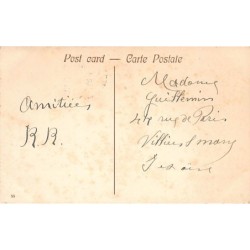 Post card — Carte Postale
Amitiées
R.R.
Madame
Guillemin
44 rue de Paris
Villiers